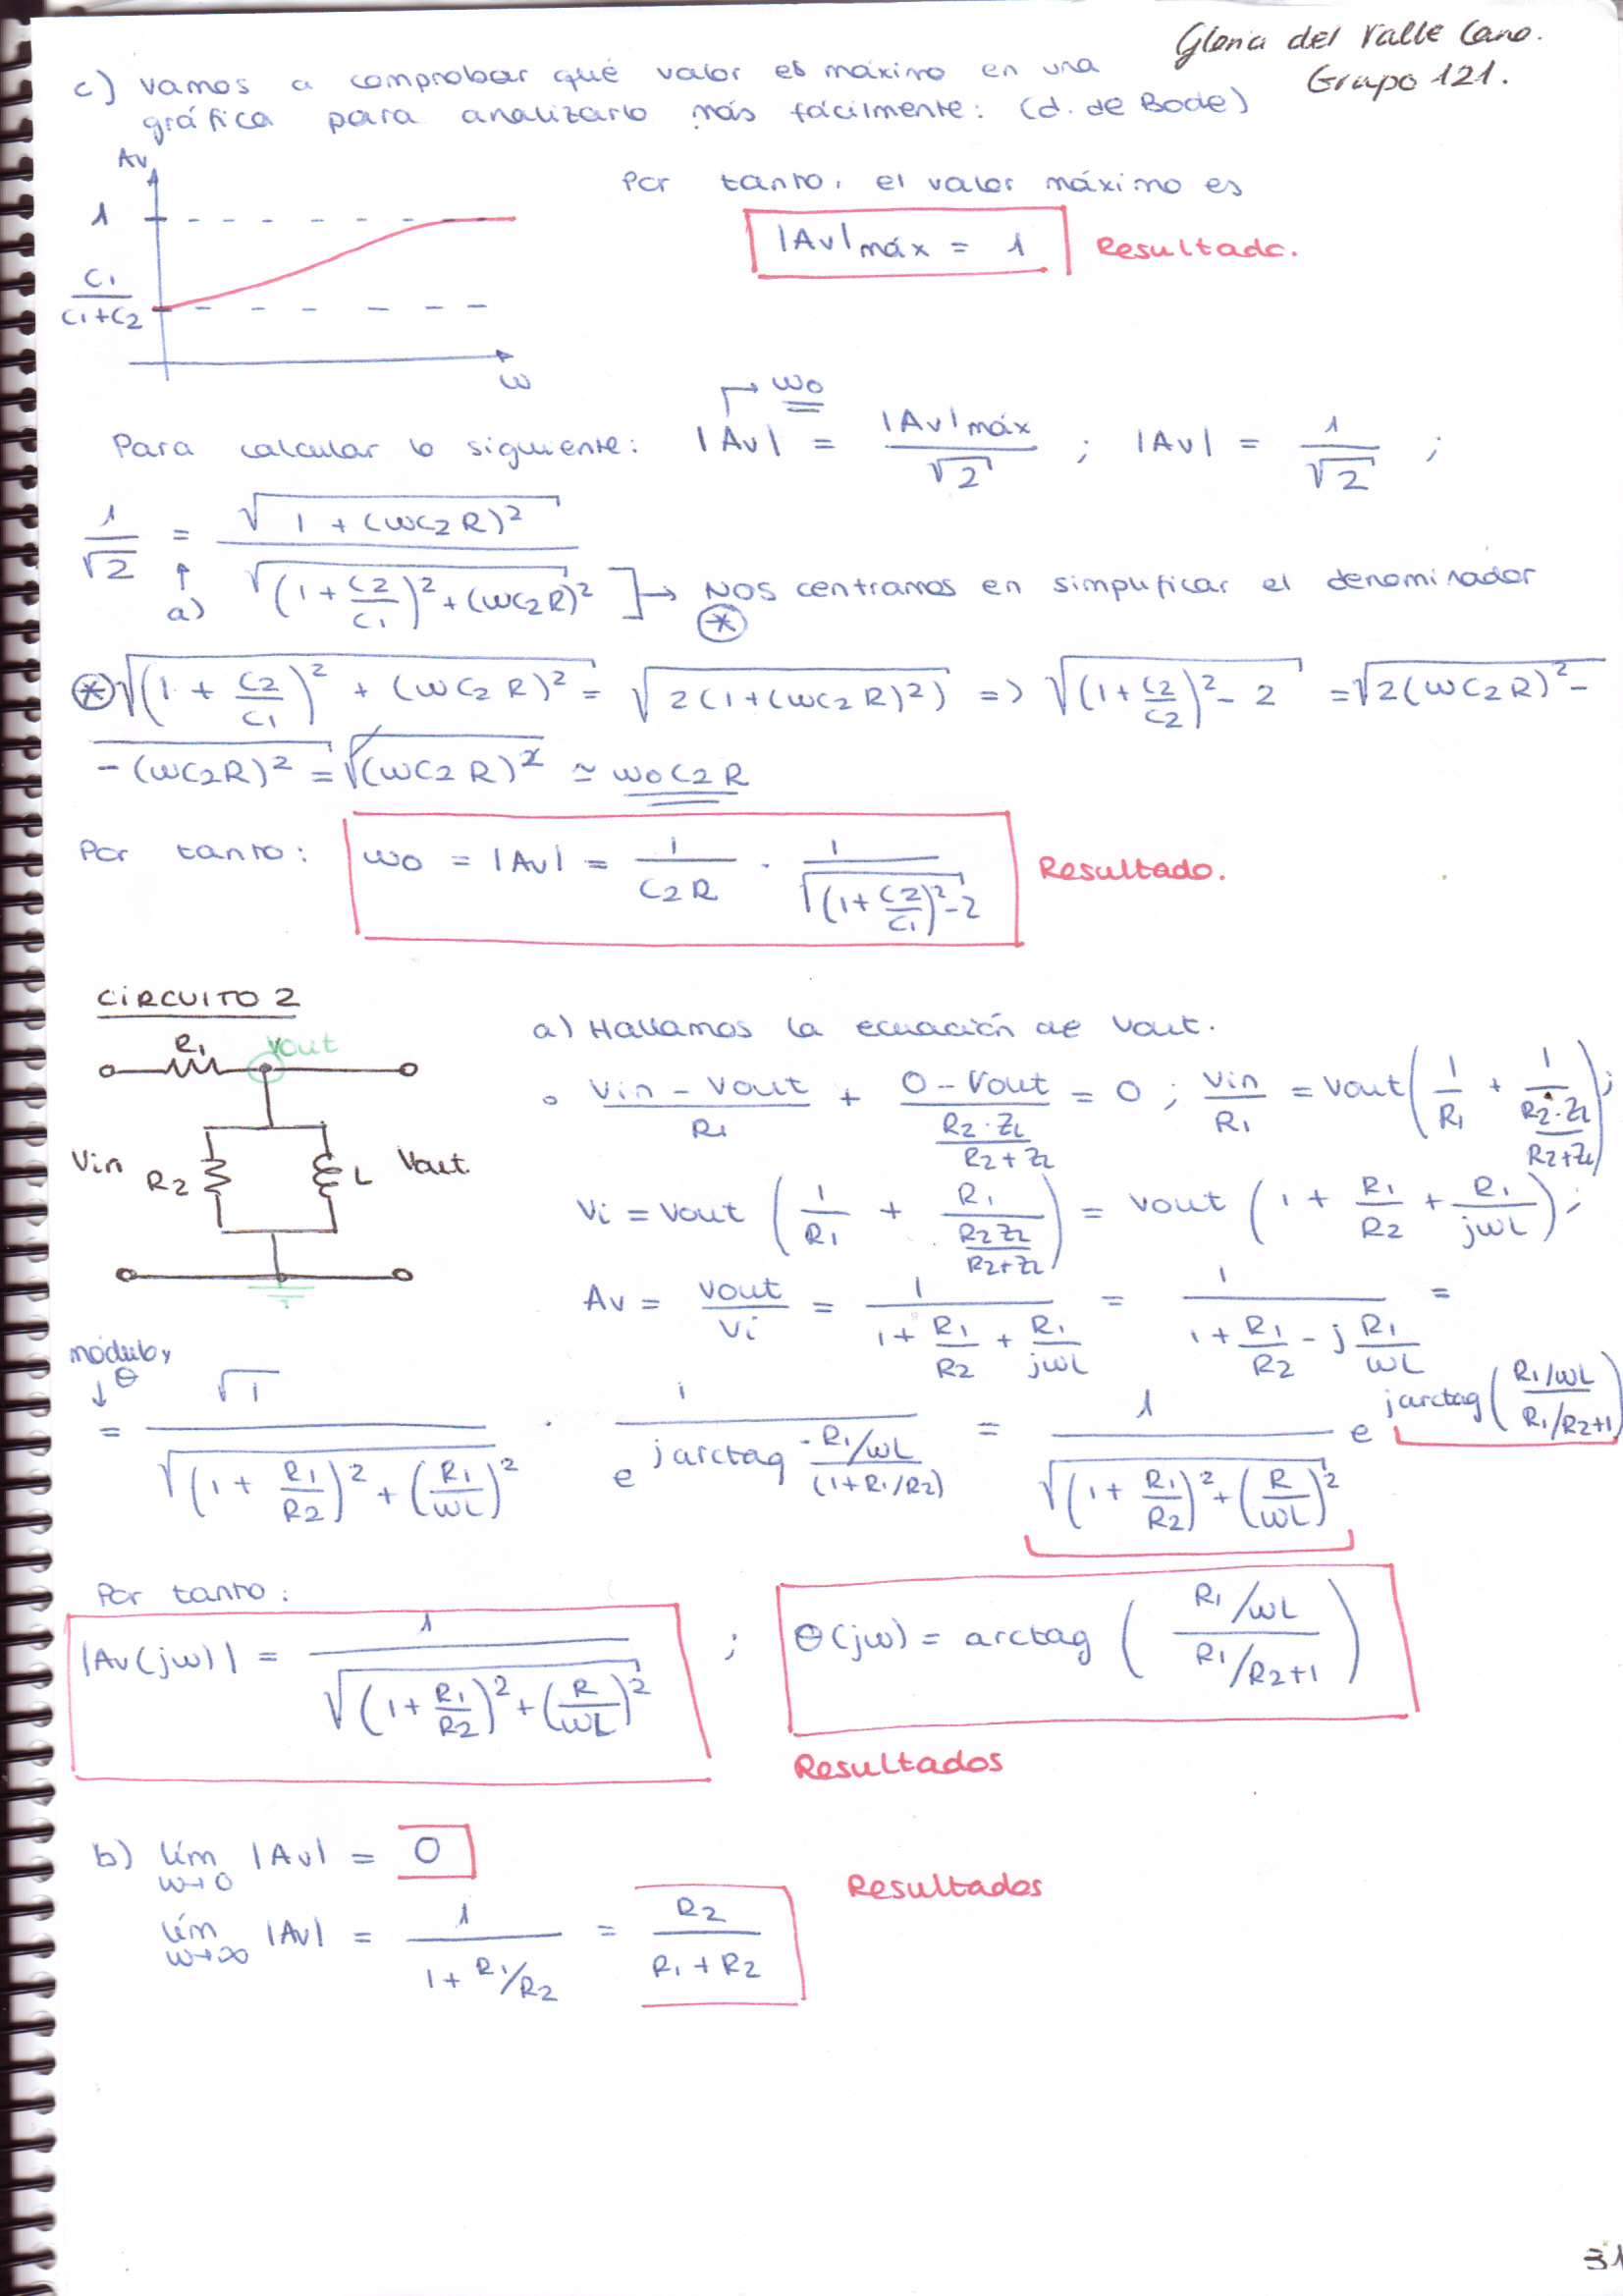 Gloria del Valle Cano.
Grupo 121.
c) vamos a comprobar qué valor es máximo en una
gráfica para analizarlo más fácilmente: (d. de Bode)
Av
1
C1/(C1+C2)
ω
Por tanto, el valor máximo es
|Av|máx = 1 Resultado.
→ ω0
Para calcular lo siguiente: |Av| = |Av|máx/√2 ; |Av| = 1/√2 ;
1/√2 = √(1 + (ωC2R)²) / √((1 + C2/C1)² + (ωC2R)²) ]→ Nos centramos en simplificar el denominador
↑ a) ⊛
⊛ √((1 + C2/C1)² + (ωC2R)²) = √(2(1+(ωC2R)²)) => √((1+C2/C2)² - 2) = √(2(ωC2R)² -
- (ωC2R)²) = √((ωC2R)²) ≃ ω0C2R
Por tanto: ω0 = |Av| = 1/(C2R) · 1/√((1+C2/C1)²-2) Resultado.
CIRCUITO 2
R1 Vout
Vin R2 L Vout
a) Hallamos la ecuación de Vout.
∘ (Vin - Vout)/R1 + (0 - Vout)/((R2·ZL)/(R2+ZL)) = 0 ; Vin/R1 = Vout(1/R1 + 1/((R2·ZL)/(R2+ZL)));
Vi = Vout (1/R1 + R1/((R2ZL)/(R2+ZL))) = Vout (1 + R1/R2 + R1/(jωL));
Av = Vout/Vi = 1/(1 + R1/R2 + R1/(jωL)) = 1/(1 + R1/R2 - j R1/(ωL)) =
módulo y
↓ θ
= √1/√((1 + R1/R2)² + (R1/ωL)²) · 1/e^(jarctag (-R1/ωL)/(1+R1/R2)) = 1/√((1 + R1/R2)² + (R/ωL)²) e^(jarctag((R1/ωL)/(R1/R2+1)))
Por tanto:
|Av(jω)| = 1/√((1 + R1/R2)² + (R/ωL)²) ; θ(jω) = arctag ((R1/ωL)/(R1/R2+1))
Resultados
b) lím ω→0 |Av| = 0
Resultados
lím ω→∞ |Av| = 1/(1 + R1/R2) = R2/(R1 + R2)
31